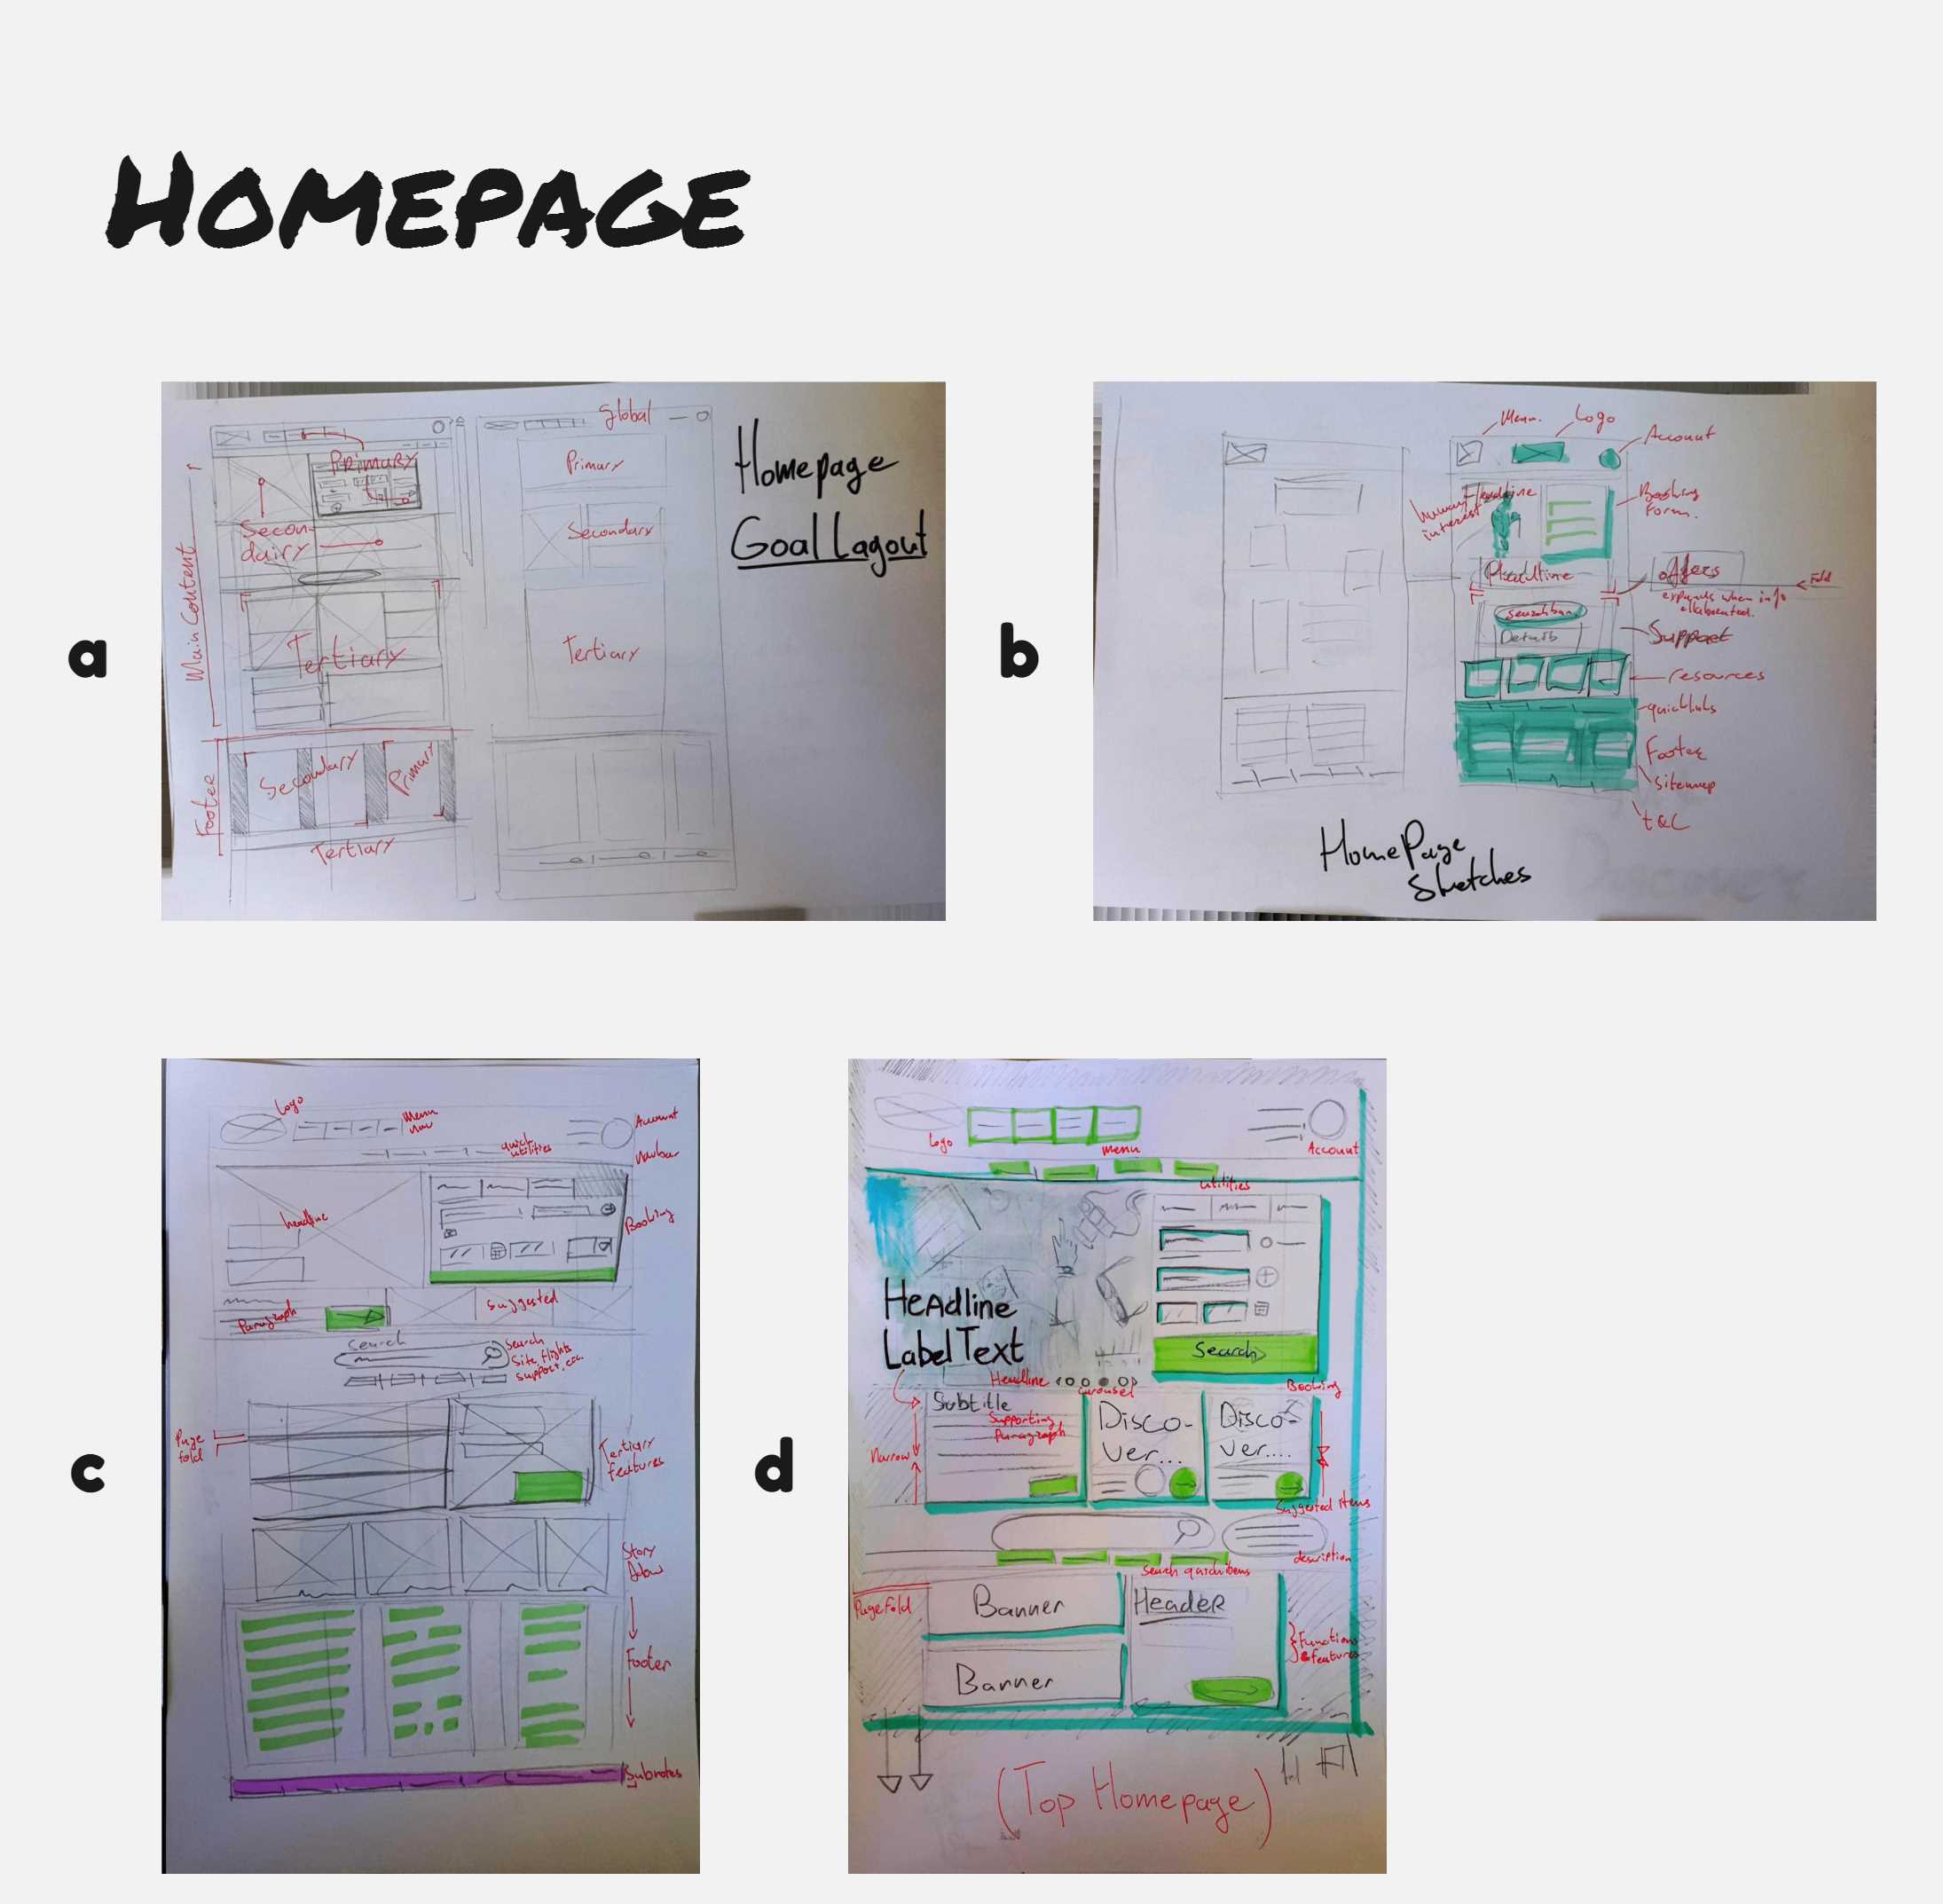 HOMEPAGE
a
Global
Primary
Primary
Secon-
dairy
Secondary
Tertiary
Tertiary
Main Content
Footer
Secondary
Primary
Tertiary
Homepage
Goal Layout
b
Menu
Logo
Account
Headline
human
interest
Booking
Form
Headline
offers
Fold
expands when info
searchbar
Details
Support
resources
quicklinks
Footer
sitemap
t&C
HomePage
Sketches
c
Logo
Menu
nav
Account
quick
utilities
Navbar
headline
Booking
Paragraph
Suggested
Search
Search
Site, flights
support, etc.
Page
fold
Tertiary
features
Story
Footer
Subnotes
d
Logo
Menu
Account
utilities
Headline
Label Text
Search
Headline
Carousel
Booking
Subtitle
Supporting
Paragraph
Disco-
ver...
Disco-
ver....
Narrow
Suggested items
description
Search quick items
Page Fold
Banner
Header
Banner
Function
& features
(Top Homepage)